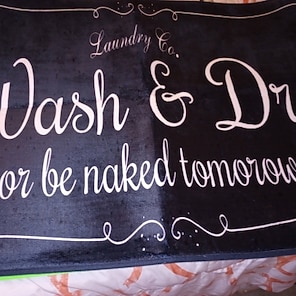 Laundry Co.
Wash & Dr
or be naked tomorow